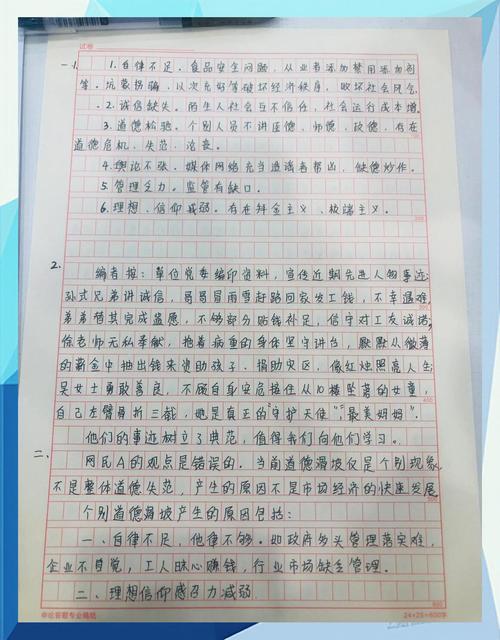 试卷
一1. 1.自律不足。食品安全问题，从业者添加禁用添加剂
等。坑蒙拐骗、以次充好等破坏经济秩序，败坏社会风气。
2.诚信缺失。陌生人社会互不信任，社会运行成本增。
3.道德松弛。个别人员不讲医德、师德、政德，存在
道德危机、失范、沦丧。
4.舆论不张。媒体网络充当造谣者帮凶，缺德炒作。
5.管理乏力。监管有缺口。
6.理想、信仰减弱。存在拜金主义、极端主义。
200
2.
编者按：单位党委编印资料，宣传近期先进人物事迹：
孙式兄弟讲诚信，哥哥冒雨雪赶路回家发工钱，不幸遇难，
弟弟替其完成遗愿，不够部分贴钱补足，信守对工友诚诺；
徐老师无私奉献，抱着病重的身体坚守讲台，默默从微薄
的薪金中抽出钱来资助孩子、捐助灾区，像红烛照亮人生；
吴女士勇敢善良，不顾自身安危接住从10楼坠落的女童，
400
自己左臂骨折三截，她是真正的“守护天使”，“最美妈妈”。
他们的事迹树立了典范，值得我们向他们学习。
二、
网民A的观点是错误的。当前道德滑坡仅是个别现象，
不是整体道德失范，产生的原因不是市场经济的快速发展。
个别道德滑坡产生的原因包括：
一、自律不足，他律不够。如政府多头管理落实难，
企业不自觉，工人昧心赚钱，行业市场缺乏管理。
二、理想信仰感召力减弱。
600
申论答题专业稿纸
24×25=600字